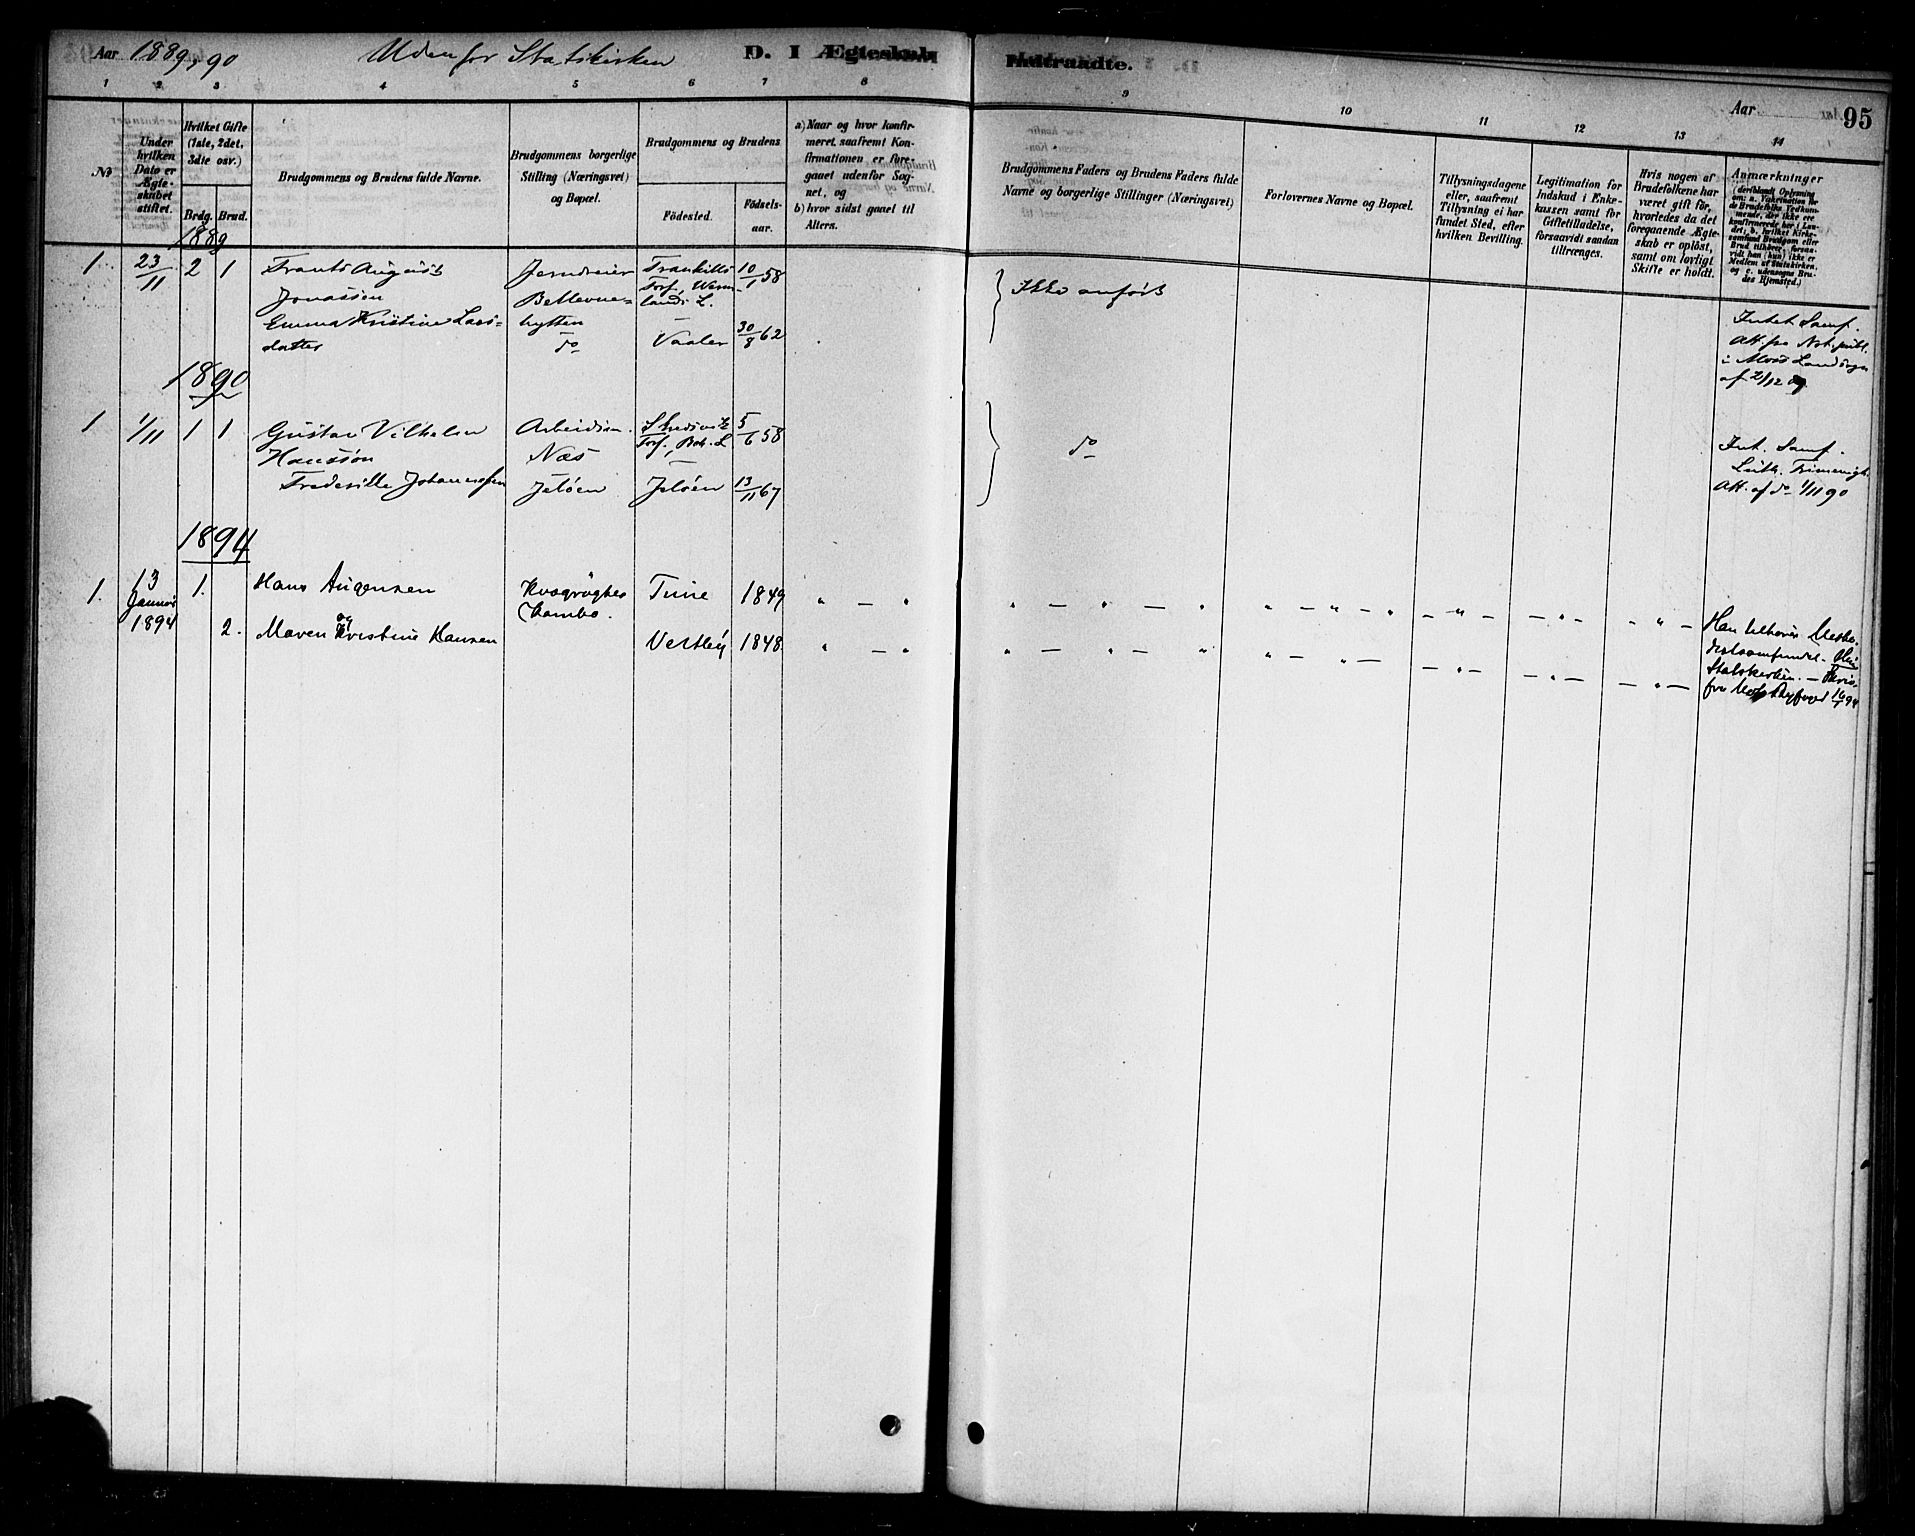 Aar 1889, 90 Udenfor Statskirken D. I Ægteskab Indtraadte. Aar 95
1 2 3 4 5 6 7 8 9 10 11 12 13 14
No
Under hvilken Dato er Ægteskabet stiftet.
Hvilket Gifte (1ste, 2det, 3die osv.)
Brdg. Brud.
Brudgommens og Brudens fulde Navne.
Brudgommens borgerlige Stilling (Næringsvei) og Bopæl.
Brudgommens og Brudens
Födested. Födsels-aar.
a) Naar og hvor konfirmeret, saafremt Konfirmationen er foregaaet udenfor Sognet, og
b) hvor sidst gaaet til Alters.
Brudgommens Faders og Brudens Faders fulde Navne og borgerlige Stillinger (Næringsvei)
Forlovernes Navne og Bopæl.
Tillysningsdagene eller, saafremt Tillysning ei har fundet Sted, efter hvilken Bevilling.
Legitimation for Indskud i Enkekassen samt for Giftetilladelse, forsaavidt saadan tiltrænges.
Hvis nogen af Brudefolkene har været gift för, hvorledes da det foregaaende Ægteskab er oplöst, samt om lovligt Skifte er holdt.
Anmærkninger
1889
1 23/11 2 1 Frants August Jerndreier 10/1 58
Jonassön Bellevue- lands L. Ikke anført
Emma Kristine Lars- hytten
datter do Vaaler 30/8 62
Intet Samf.
Att. fra Not. publ.
i Moss Landsogn
af 2/12 89
1890
1 1/11 1 1 Gustav Vilhelm Arbeidsm. 5/6 58
Hanssön Næs do
Jelöen Jelöen 13/11 67
Int. Samf.
Luth. Frimenigh.
Att. af do 1/11 90
1894
1. 13 Januar 1894 1. Hans Tune 1849
og
2. Maren Kristine Hansen Vestby 1848
Han tilhörer Metho-
distsamfundet. Hun
Statskirken.